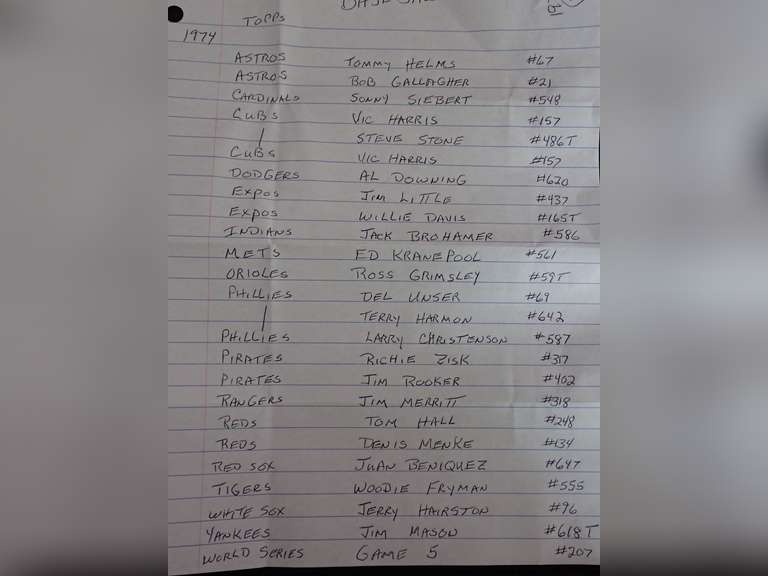 TOPPS
1974
ASTROS TOMMY HELMS #67
ASTROS BOB GALLAGHER #21
CARDINALS SONNY SIEBERT #548
CUBS VIC HARRIS #157
STEVE STONE #486T
CUBS VIC HARRIS #157
DODGERS AL DOWNING #620
EXPOS JIM LITTLE #437
EXPOS WILLIE DAVIS #165T
INDIANS JACK BROHAMER #586
METS ED KRANEPOOL #561
ORIOLES ROSS GRIMSLEY #59T
PHILLIES DEL UNSER #69
TERRY HARMON #642
PHILLIES LARRY CHRISTENSON #587
PIRATES RICHIE ZISK #317
PIRATES JIM ROOKER #402
RANGERS JIM MERRITT #318
REDS TOM HALL #248
REDS DENIS MENKE #134
RED SOX JUAN BENIQUEZ #647
TIGERS WOODIE FRYMAN #555
WHITE SOX JERRY HAIRSTON #96
YANKEES JIM MASON #618T
WORLD SERIES GAME 5 #207